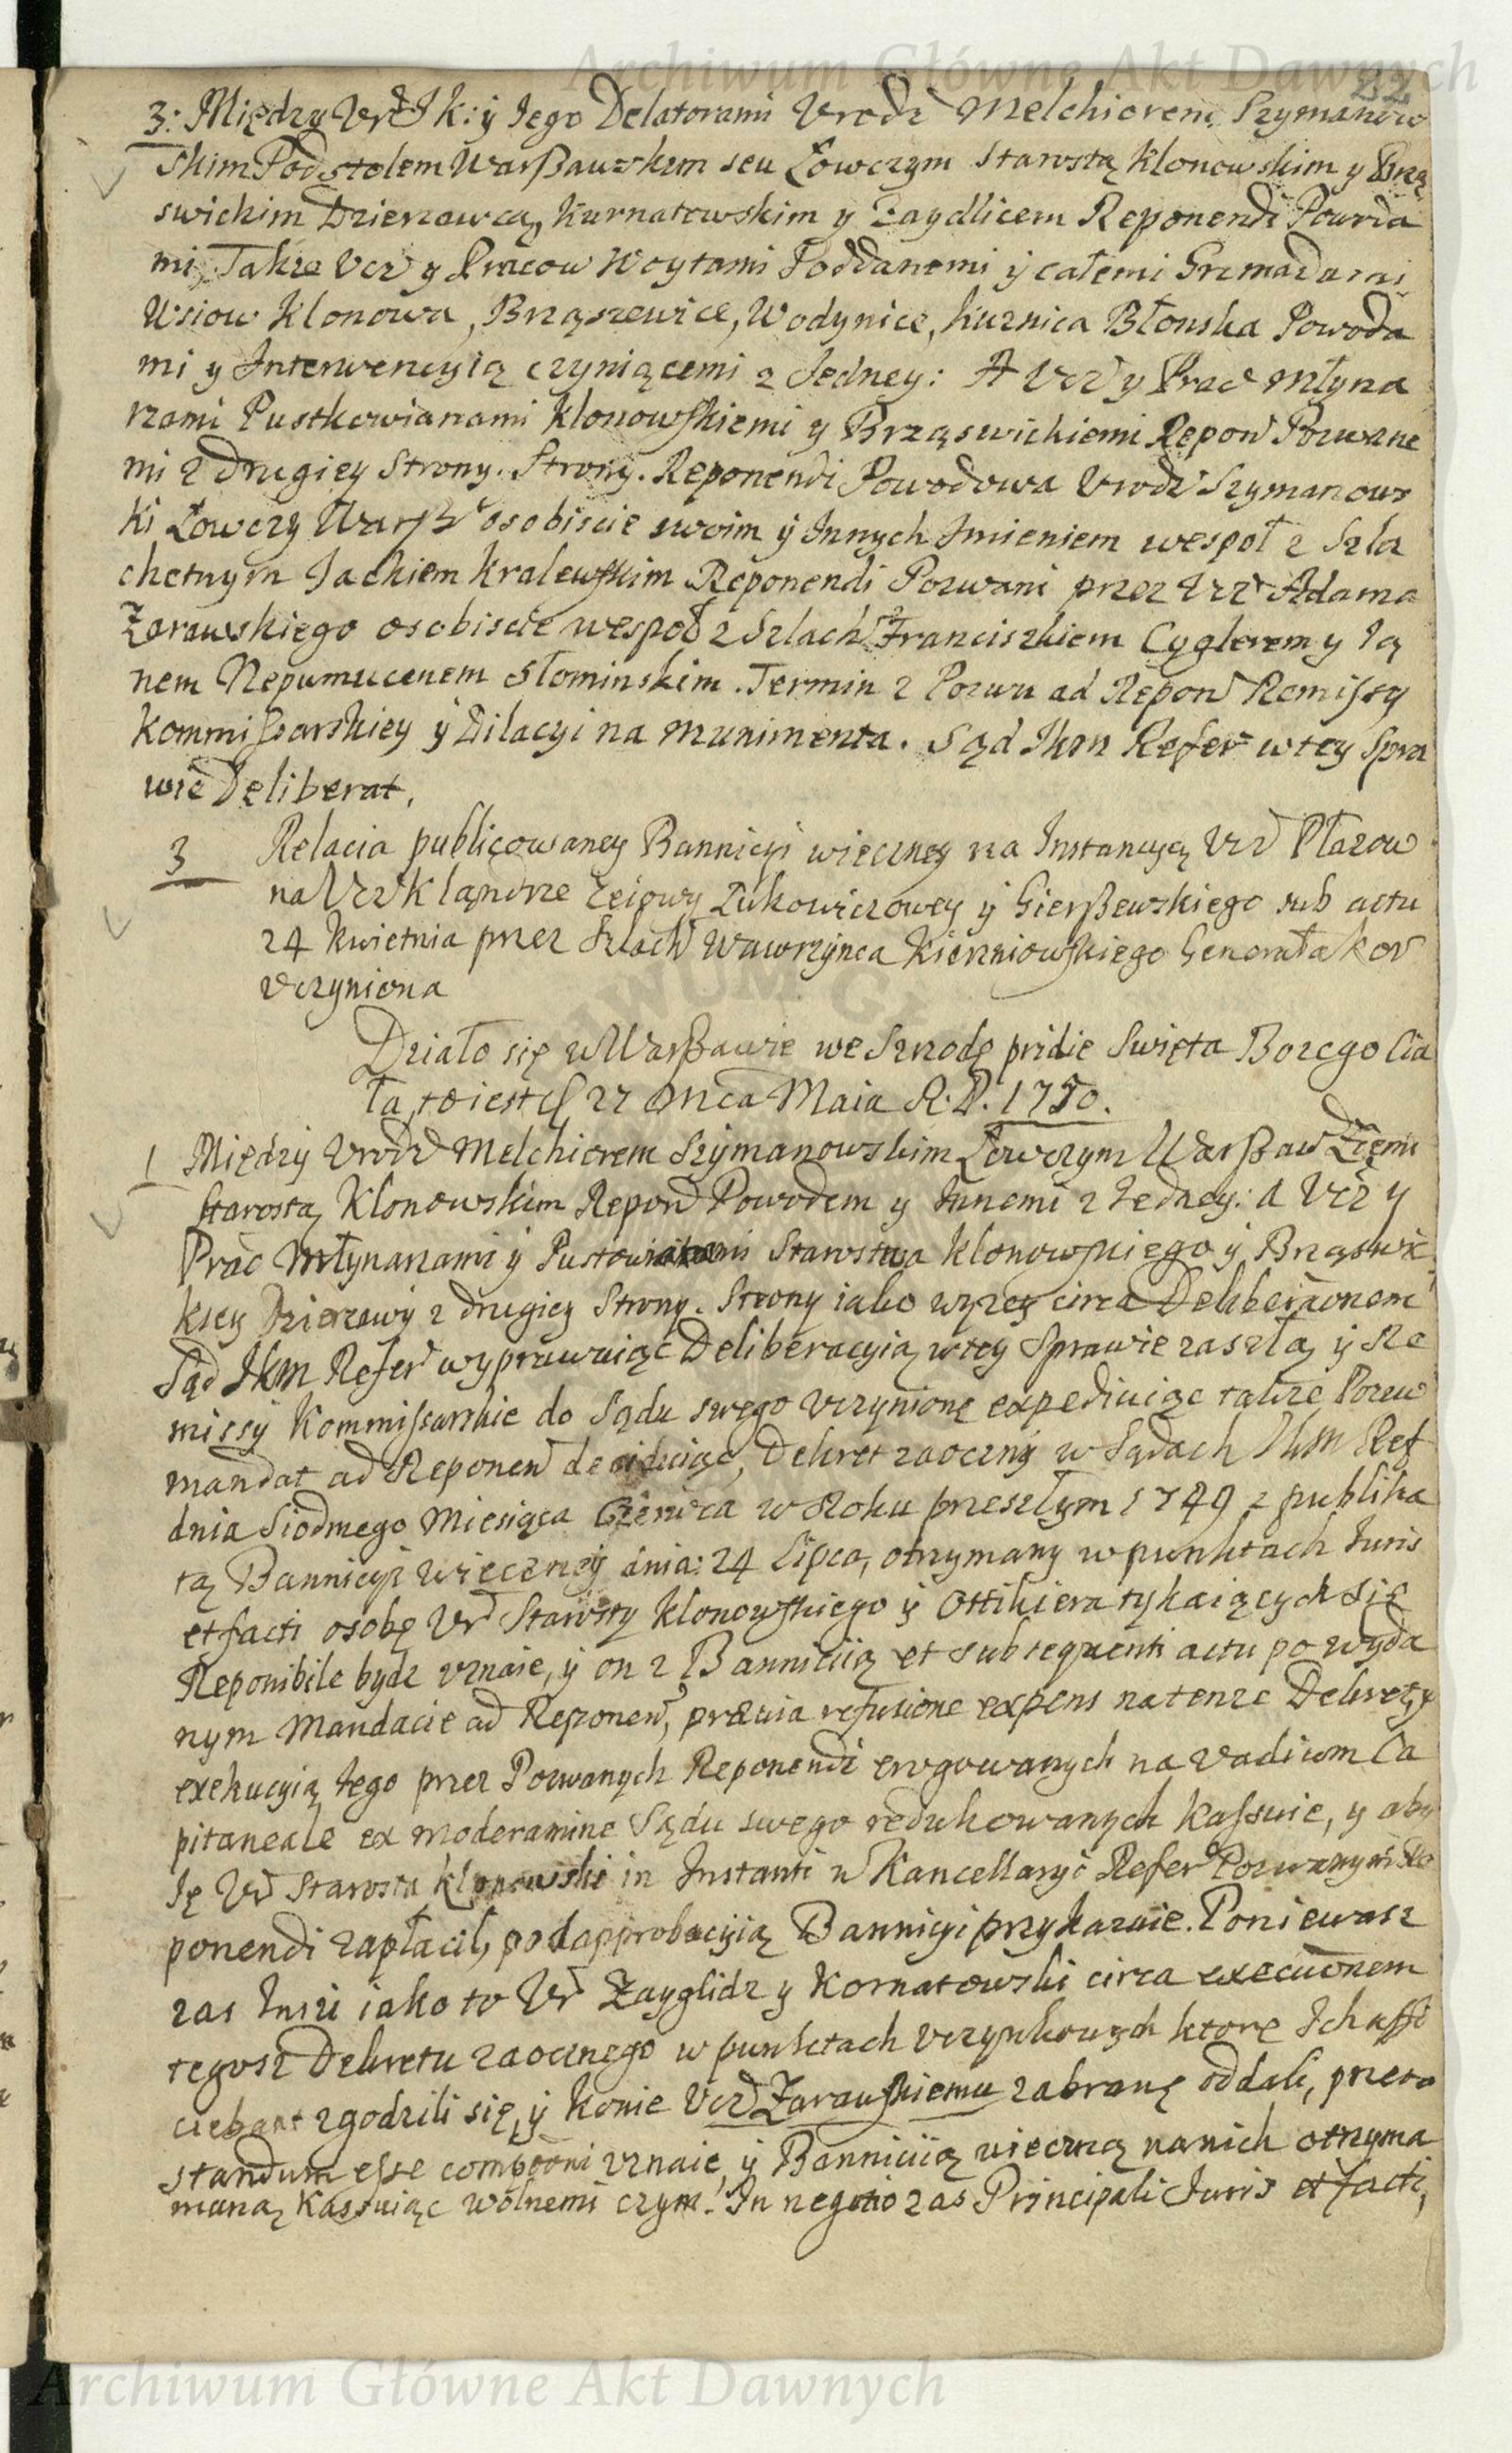 Archiwum Główne Akt Dawnych
22
3: Między Ur J K: ÿ Jego Delatorami Vrodz Melchiorem Szymanow
skim Podstolem Warßawskim seu Łowczym Starostą Klonowskim y Brzą
swickim Dzierzawcą, Kurnatowskim y Zaydlicem Reponendi Powoda
mi, Także Vcz y Pracow Woytami Poddanemi ÿ całemi Gromadami
Wsiow Klonowa, Brząszewice, Wodynice, Kuznica Błonska Powoda
mi y Interwencyią czyniącemi z Jedney: A Vcz y Prac Młyna
rzami Pustkowianami Klonowskiemi y Brząswickiemi Repon Pozwane
mi z drugiey Strony. Strony. Reponendi Powodowa Vrodz Szymanows
ki Łowczy Warß osobiscie swoim ÿ Innych Imieniem wespoł z Szla
chetnym Jackiem Kralewskim Reponendi Pozwani przez Vcz Adama
Zarawskiego osobiscie wespoł z Szlach Franciszkiem Cyglerem y Ja
nem Nepumucenem Słominskim. Termin z Pozwu ad Repon Remissy
Kommissarskiey ÿ Dilacyi na Munimenta. Sąd Jkm Refer w tey Spra
wie Deliberat.
3 Relacia publicowaney Bannicyi wieczney na Instancyą Vrd Płazow
na Vrd Klandze Zeiowy Zukowiczowey ÿ Gierßewskiego sub actu
24 Kwietnia przez Szlach Wawrzyńca Kierzniowskiego Generała Kor
Vczyniona
Działo się w Warßawie we Szrodę pridie Swięta Bozego Cia
ła, to iest d 27 Mca Maia R. P. 1750.
1 Między Vrodz Melchiorem Szÿmanowskim Łowczym Warßaw Ziemi
Starostą Klonowskim Repon Powodem y Innemi z Jedney: a Vcz y
Prac Młynarzami ÿ Pustowianami Starostwa Klonowskiego ÿ Brząswic
kiey Dzierzawÿ z drugiey Strony. Strony iako wyzey circa Deliberaonem
Sąd Jkm Refer wyprawuiąc Deliberacyią w tey Sprawie zaszłą ÿ Re
missÿ Kommissarskie do Sądu swego Vczynionę expediuiąc także Pozew
mandat ad Reponen deciduiąc, Dekret zaoczny w Sądach Jkm Ref
dnia Siodmego Miesiąca Czerwca w Roku przeszłym 1749 z publika
tą Bannicyi wieczney dnia: 24 Lipca, otrzymany w punktach Juris
et facti osobę Vr Starosty Klonowskiego ÿ Ottikiera tykaiących się
Reponibile bydz vznaie, ÿ on z Banniciią et subsequenti actu po wyda
nym Mandacie ad Reponen, prævia refusione expens na tenze Dekret, y
exekucyią tego przez Pozwanych Reponendi erogowanych na vadium Ca
pitaneale ex moderamine Sądu swego redukowanych Kassuie, y aby
Ję Vr Starosta Klonowski in Instanti w Kancellaryi Refer Pozwanym Re
ponendi zapłacił, pod approbacyią Bannicyi przykazuie. Poniewasz
zas Inszi iako to Vr Zayglidz y Kornatowski circa execuonem
tegosz Dekretu zaocznego w punktach Vczynkowych ktore Ich affi
ciebant zgodzili się, ÿ Konie Vcz Zarawskiemu zabranę oddali, przeto
standum esse composioni vznaie, ÿ Banniciią wieczną na nich otrzyma
maną Kassuiąc wolnemi czyni. In negotio zas Principali Juris et facti,
Archiwum Główne Akt Dawnych